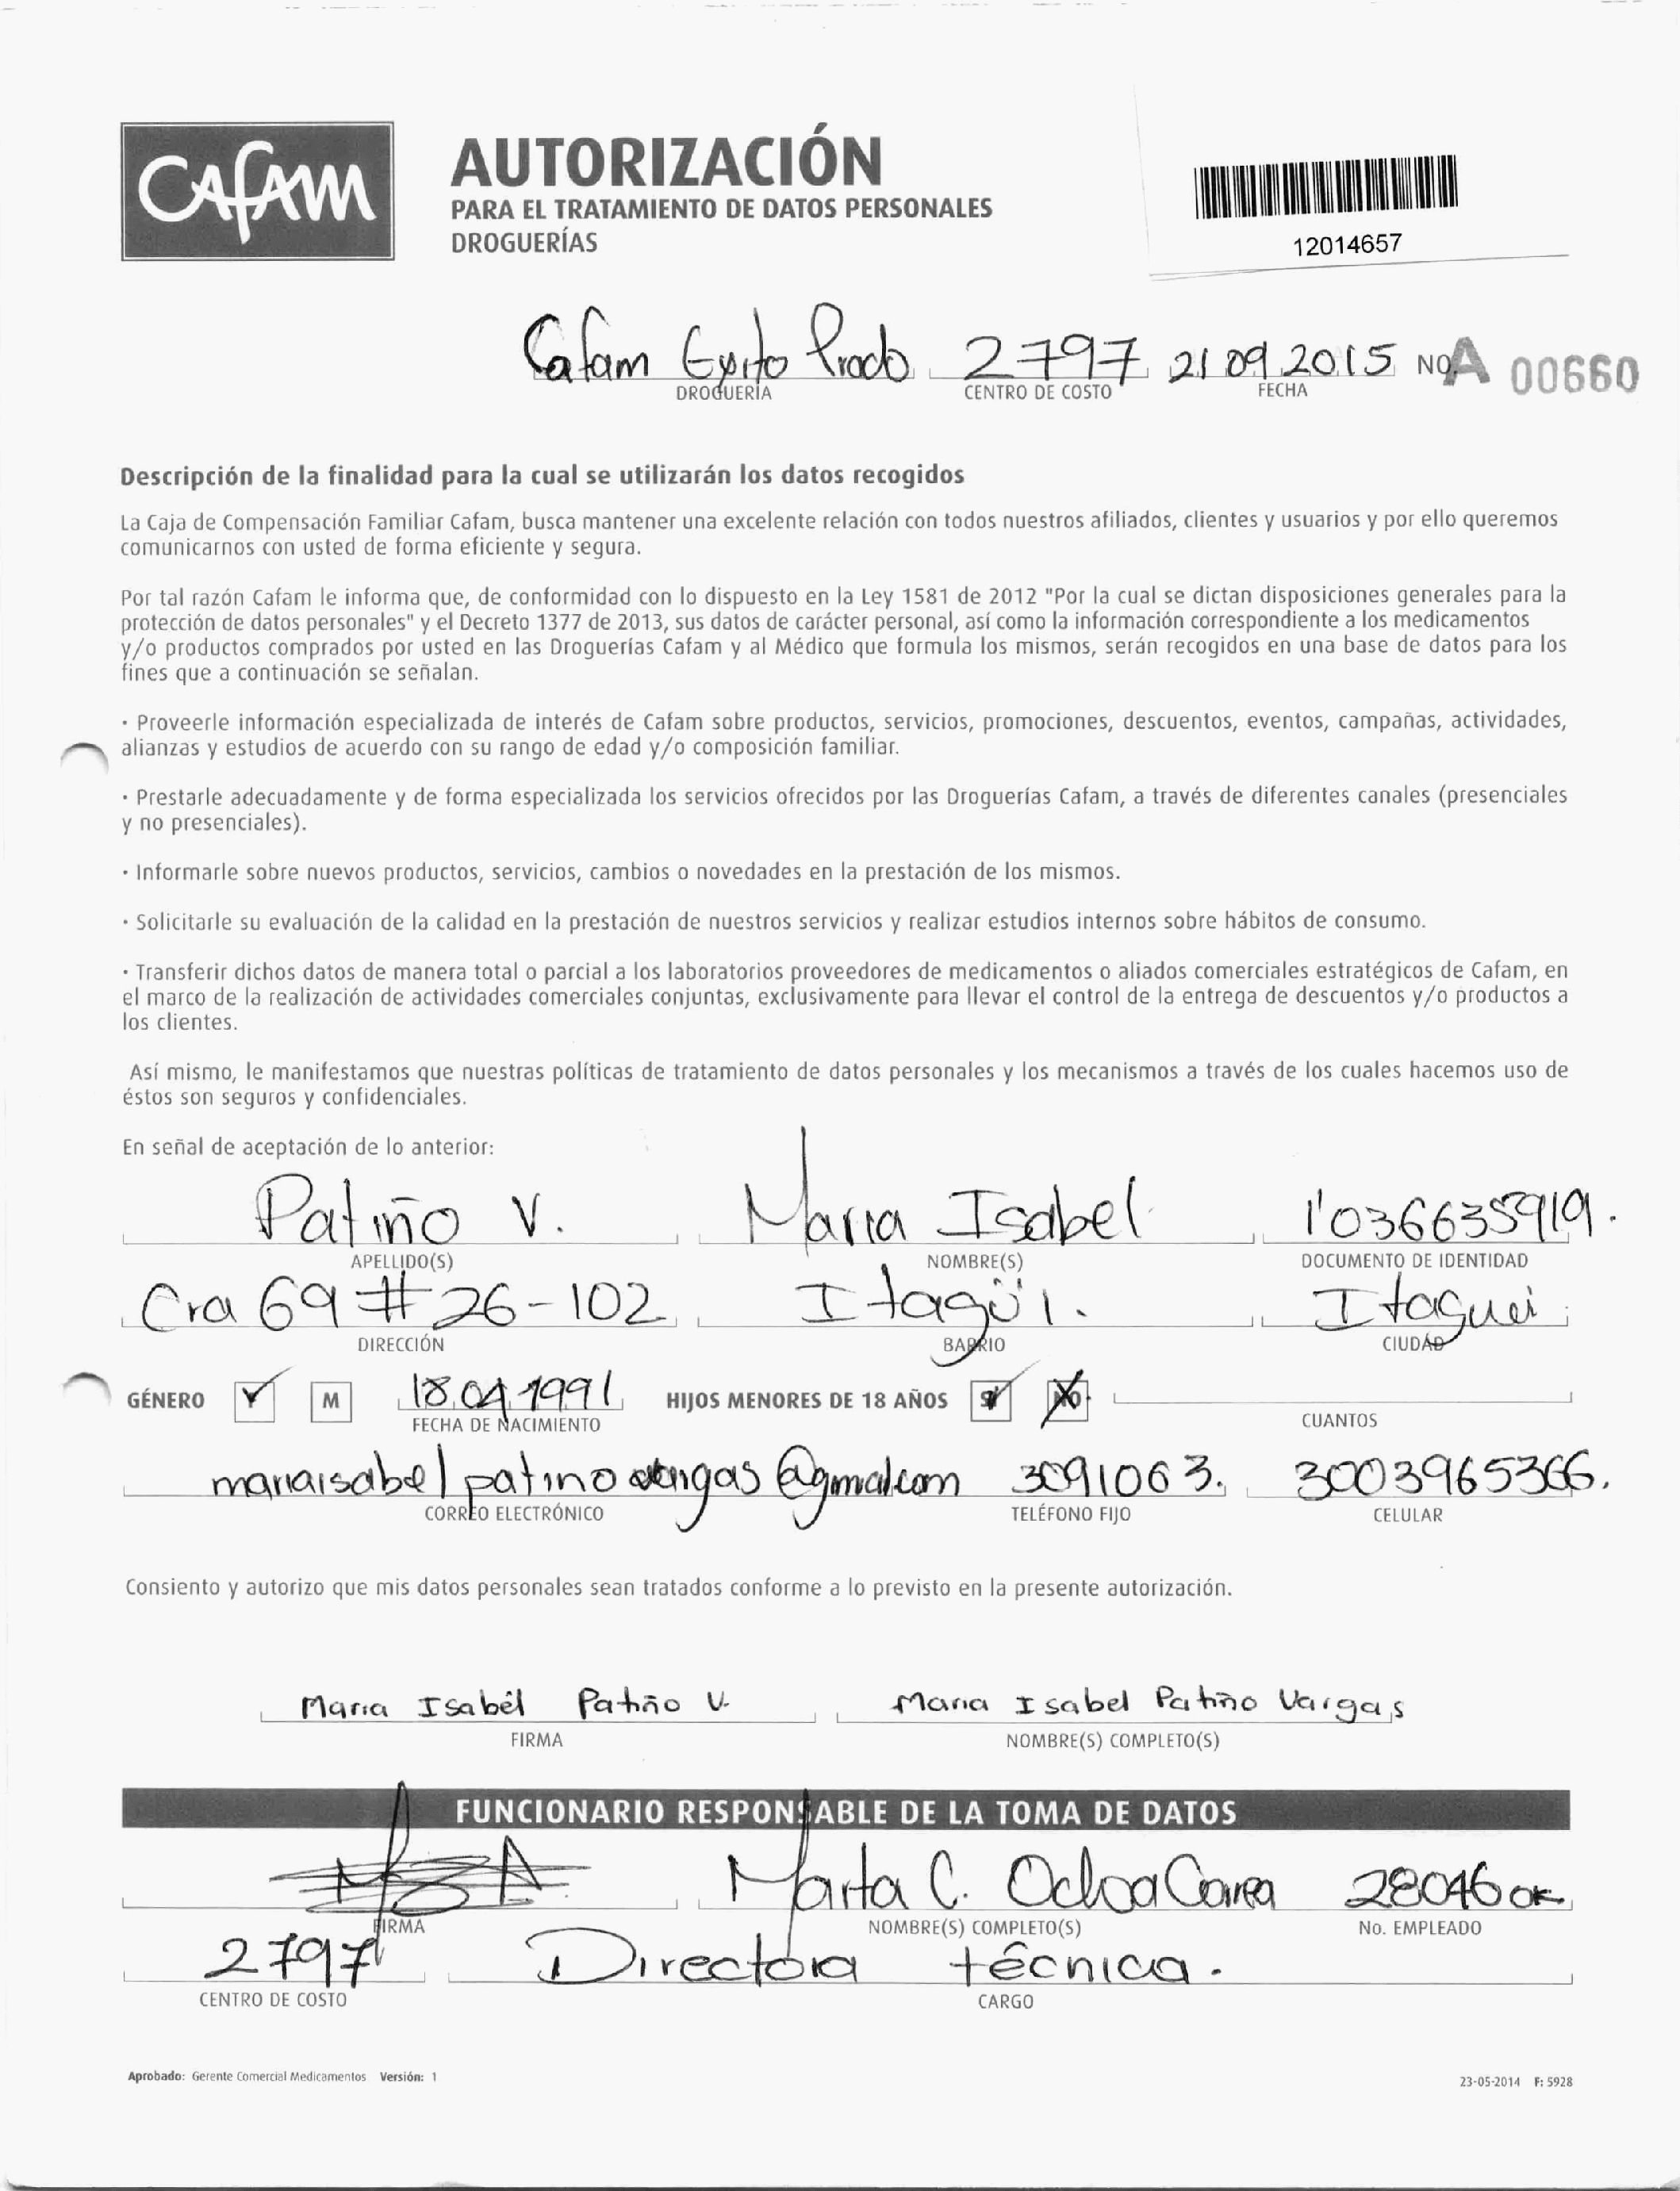 CAFAM
AUTORIZACIÓN
PARA EL TRATAMIENTO DE DATOS PERSONALES
DROGUERÍAS
12014657
Cafam Exito Prado 2797 21 09 2015 NO. A 00660
DROGUERÍA CENTRO DE COSTO FECHA
Descripción de la finalidad para la cual se utilizarán los datos recogidos
La Caja de Compensación Familiar Cafam, busca mantener una excelente relación con todos nuestros afiliados, clientes y usuarios y por ello queremos
comunicarnos con usted de forma eficiente y segura.
Por tal razón Cafam le informa que, de conformidad con lo dispuesto en la Ley 1581 de 2012 "Por la cual se dictan disposiciones generales para la
protección de datos personales" y el Decreto 1377 de 2013, sus datos de carácter personal, así como la información correspondiente a los medicamentos
y/o productos comprados por usted en las Droguerías Cafam y al Médico que formula los mismos, serán recogidos en una base de datos para los
fines que a continuación se señalan.
· Proveerle información especializada de interés de Cafam sobre productos, servicios, promociones, descuentos, eventos, campañas, actividades,
alianzas y estudios de acuerdo con su rango de edad y/o composición familiar.
· Prestarle adecuadamente y de forma especializada los servicios ofrecidos por las Droguerías Cafam, a través de diferentes canales (presenciales
y no presenciales).
· Informarle sobre nuevos productos, servicios, cambios o novedades en la prestación de los mismos.
· Solicitarle su evaluación de la calidad en la prestación de nuestros servicios y realizar estudios internos sobre hábitos de consumo.
· Transferir dichos datos de manera total o parcial a los laboratorios proveedores de medicamentos o aliados comerciales estratégicos de Cafam, en
el marco de la realización de actividades comerciales conjuntas, exclusivamente para llevar el control de la entrega de descuentos y/o productos a
los clientes.
Así mismo, le manifestamos que nuestras políticas de tratamiento de datos personales y los mecanismos a través de los cuales hacemos uso de
éstos son seguros y confidenciales.
En señal de aceptación de lo anterior:
Patiño V. Maria Isabel 1'036635919.
APELLIDO(S) NOMBRE(S) DOCUMENTO DE IDENTIDAD
Cra 69 # 26-102 Itagüi. Itaguei
DIRECCIÓN BARRIO CIUDAD
GÉNERO M 18.04.1991 HIJOS MENORES DE 18 AÑOS SI NO
FECHA DE NACIMIENTO CUANTOS
mariaisabelpatino @gmail.com 3091063. 3003965366.
CORREO ELECTRÓNICO TELÉFONO FIJO CELULAR
Consiento y autorizo que mis datos personales sean tratados conforme a lo previsto en la presente autorización.
Maria Isabel Patiño V. Maria Isabel Patiño Vargas
FIRMA NOMBRE(S) COMPLETO(S)
FUNCIONARIO RESPONSABLE DE LA TOMA DE DATOS
Marta C. Ochoa 28046 OK
FIRMA NOMBRE(S) COMPLETO(S) No. EMPLEADO
2797 Directora técnica.
CENTRO DE COSTO CARGO
Aprobado: Gerente Comercial Medicamentos Versión: 1 23-05-2014 F: 5928